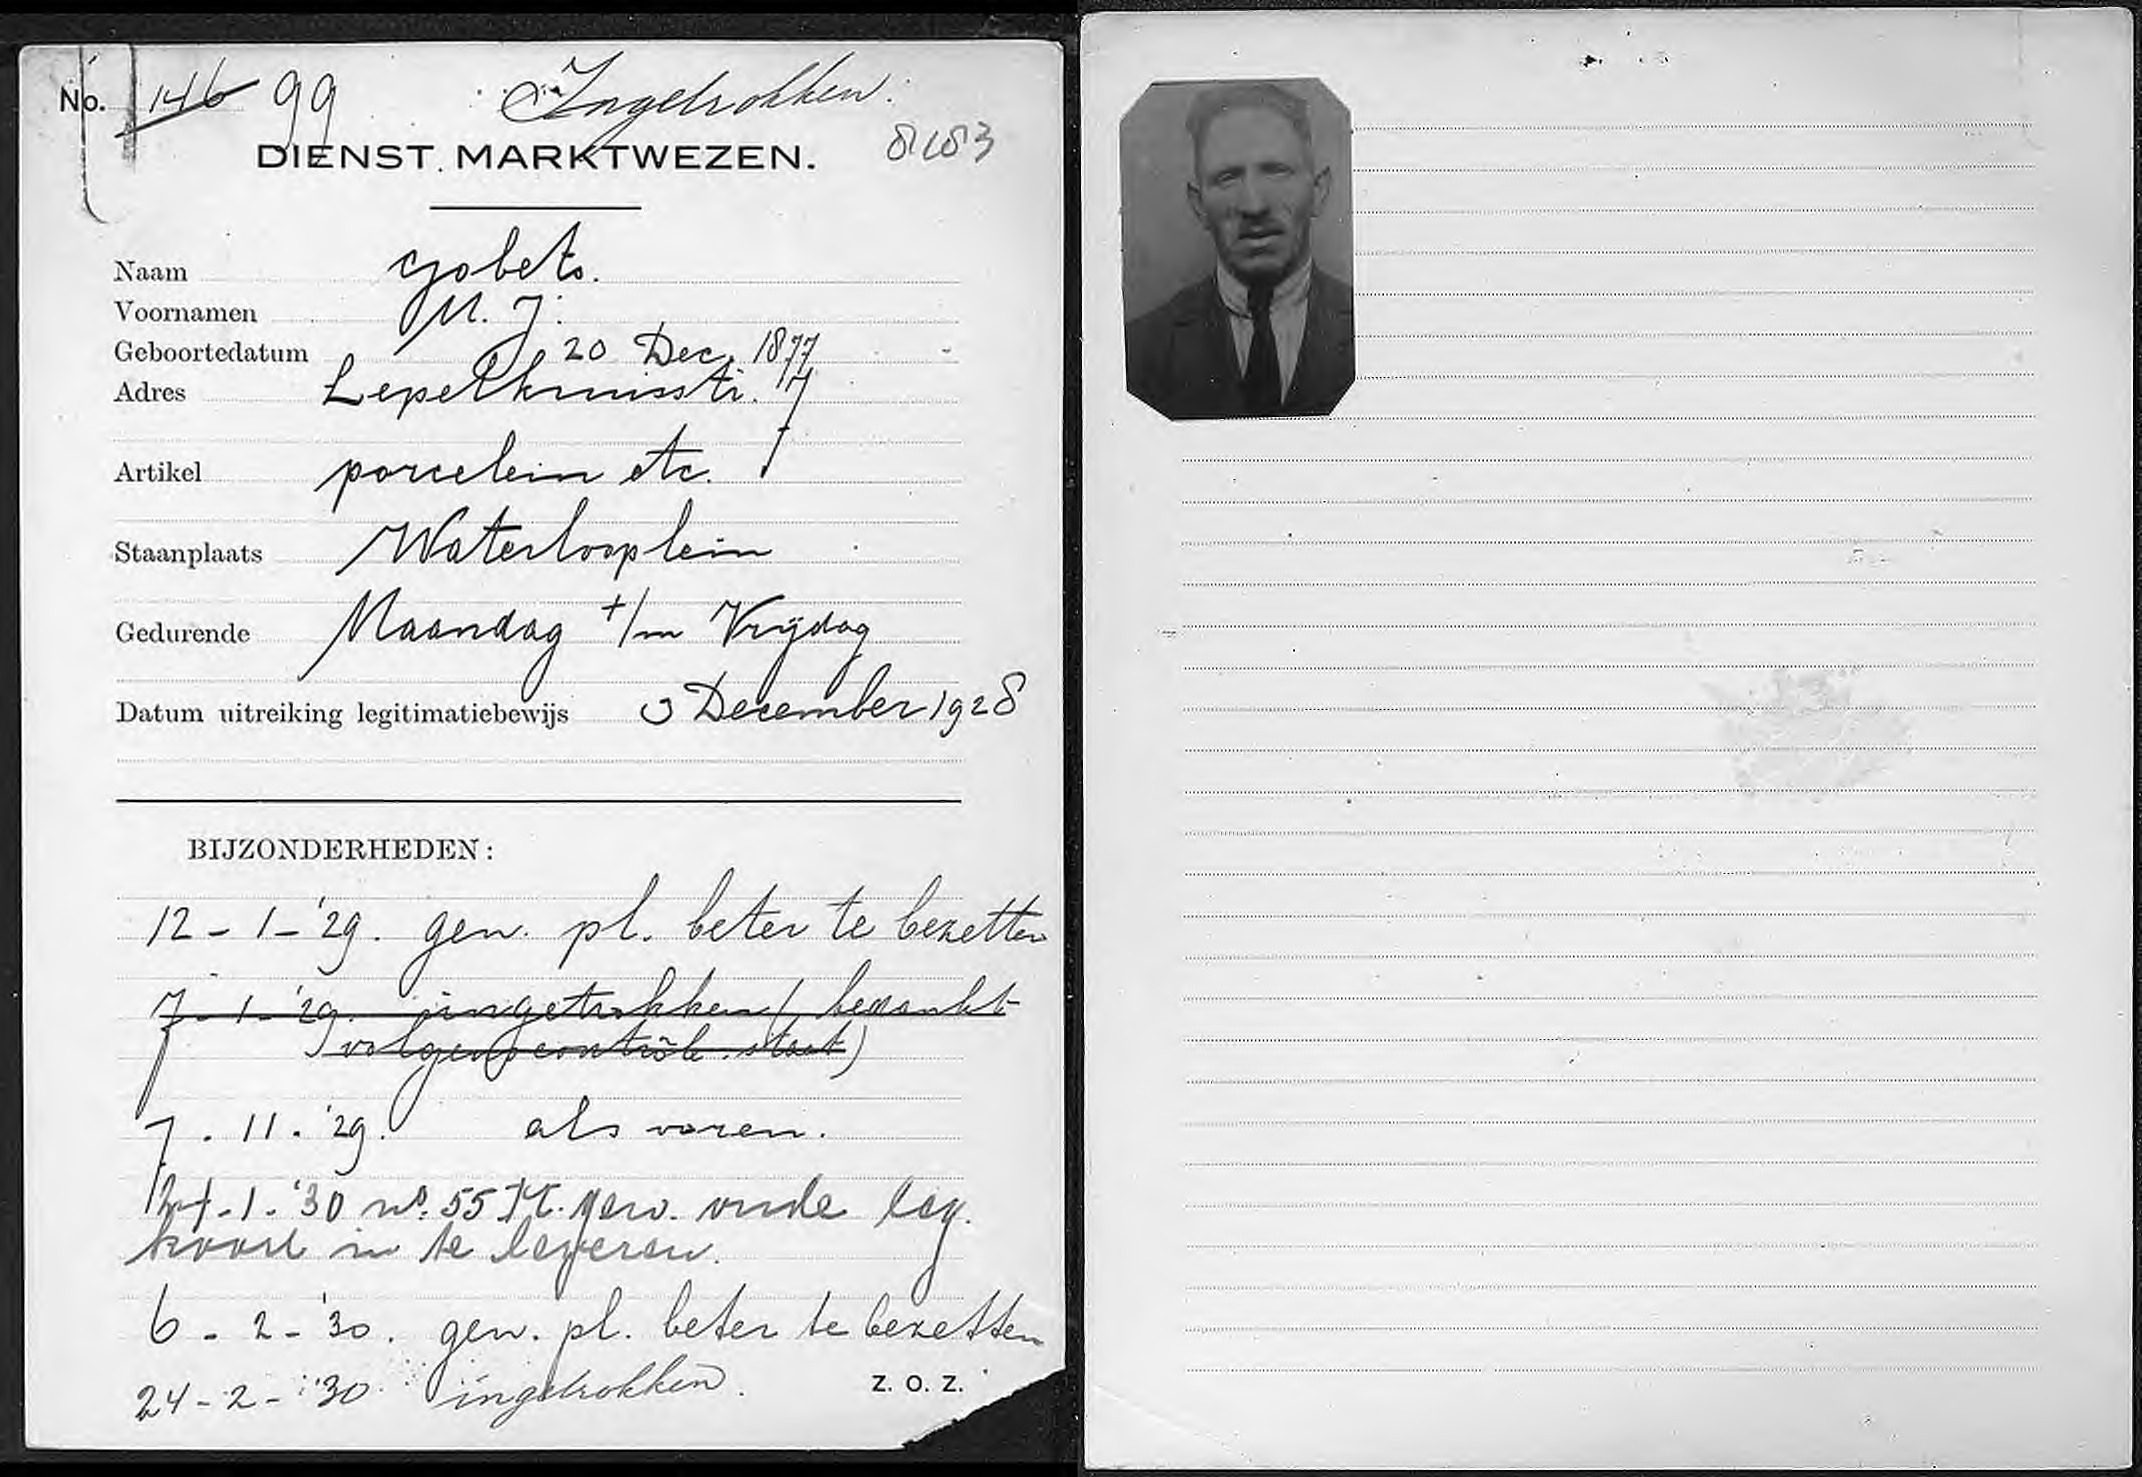 No. 146 99 Ingetrokken.
DIENST MARKTWEZEN.
Naam Gobets.
Voornamen M. J.
Geboortedatum 20 Dec. 1877
Adres Lepelkruisstr. 17
Artikel porcelein etc.
Staanplaats Waterlooplein
Gedurende Maandag t/m Vrijdag
Datum uitreiking legitimatiebewijs 3 December 1928
BIJZONDERHEDEN:
12-1-'29. gen. pl. beter te bezetten
7-1-'29. ingetrokken ( bedankt
volgens contrôle staat)
7.11.'29. als voren.
1-'30 no. 55 oude leg.
kaart in te leveren.
6-2-'30. gen. pl. beter te bezetten
24-2-'30 ingetrokken.
Z. O. Z.